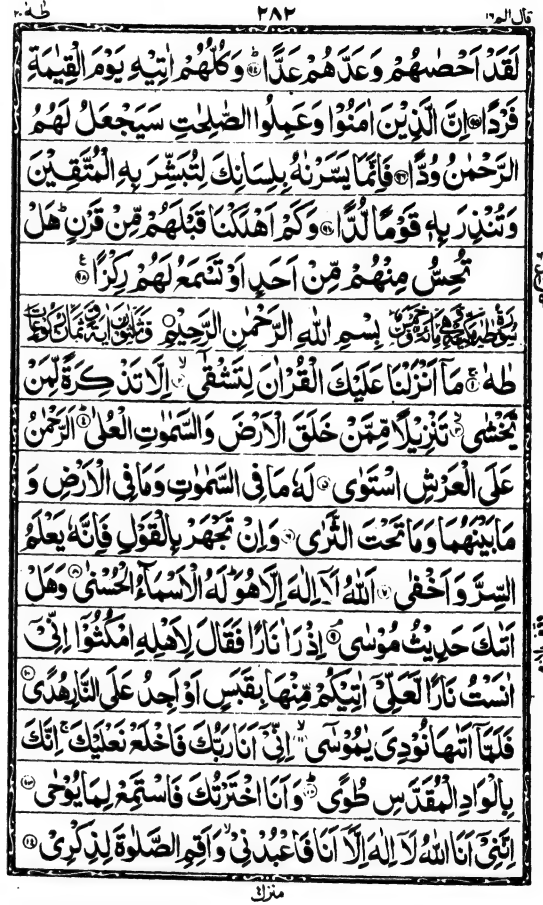 قال الم ١٦ ٢٨٢ طٰهٰ ٢٠
لَقَدْ اَحْصٰىهُمْ وَعَدَّهُمْ عَدًّا ﴿۹۴﴾ وَكُلُّهُمْ اٰتِيْهِ يَوْمَ الْقِيٰمَةِ
فَرْدًا ﴿۹۵﴾ اِنَّ الَّذِيْنَ اٰمَنُوْا وَعَمِلُوا الصّٰلِحٰتِ سَيَجْعَلُ لَهُمُ
الرَّحْمٰنُ وُدًّا ﴿۹۶﴾ فَاِنَّمَا يَسَّرْنٰهُ بِلِسَانِكَ لِتُبَشِّرَ بِهِ الْمُتَّقِيْنَ
وَتُنْذِرَ بِهٖ قَوْمًا لُّدًّا ﴿۹۷﴾ وَكَمْ اَهْلَكْنَا قَبْلَهُمْ مِّنْ قَرْنٍ ؕ هَلْ
تُحِسُّ مِنْهُمْ مِّنْ اَحَدٍ اَوْ تَسْمَعُ لَهُمْ رِكْزًا ﴿۹۸﴾
بِسْمِ اللهِ الرَّحْمٰنِ الرَّحِيْمِ
طٰهٰ ﴿۱﴾ مَآ اَنْزَلْنَا عَلَيْكَ الْقُرْاٰنَ لِتَشْقٰٓى ﴿۲﴾ اِلَّا تَذْكِرَةً لِّمَنْ
يَّخْشٰى ﴿۳﴾ تَنْزِيْلًا مِّمَّنْ خَلَقَ الْاَرْضَ وَالسَّمٰوٰتِ الْعُلٰى ﴿۴﴾ اَلرَّحْمٰنُ
عَلَى الْعَرْشِ اسْتَوٰى ﴿۵﴾ لَهٗ مَا فِي السَّمٰوٰتِ وَمَا فِي الْاَرْضِ وَ
مَا بَيْنَهُمَا وَمَا تَحْتَ الثَّرٰى ﴿۶﴾ وَاِنْ تَجْهَرْ بِالْقَوْلِ فَاِنَّهٗ يَعْلَمُ
السِّرَّ وَاَخْفٰى ﴿۷﴾ اَللهُ لَآ اِلٰهَ اِلَّا هُوَ ؕ لَهُ الْاَسْمَآءُ الْحُسْنٰى ﴿۸﴾ وَهَلْ
اَتٰىكَ حَدِيْثُ مُوْسٰى ﴿۹﴾ اِذْ رَاٰ نَارًا فَقَالَ لِاَهْلِهِ امْكُثُوْٓا اِنِّيْٓ
اٰنَسْتُ نَارًا لَّعَلِّيْٓ اٰتِيْكُمْ مِّنْهَا بِقَبَسٍ اَوْ اَجِدُ عَلَى النَّارِ هُدًى ﴿۱۰﴾
فَلَمَّآ اَتٰىهَا نُوْدِيَ يٰمُوْسٰى ﴿۱۱﴾ اِنِّيْٓ اَنَا رَبُّكَ فَاخْلَعْ نَعْلَيْكَ ۚ اِنَّكَ
بِالْوَادِ الْمُقَدَّسِ طُوًى ﴿۱۲﴾ وَاَنَا اخْتَرْتُكَ فَاسْتَمِعْ لِمَا يُوْحٰى ﴿۱۳﴾
اِنَّنِيْٓ اَنَا اللهُ لَآ اِلٰهَ اِلَّآ اَنَا فَاعْبُدْنِيْ ۙ وَاَقِمِ الصَّلٰوةَ لِذِكْرِيْ ﴿۱۴﴾